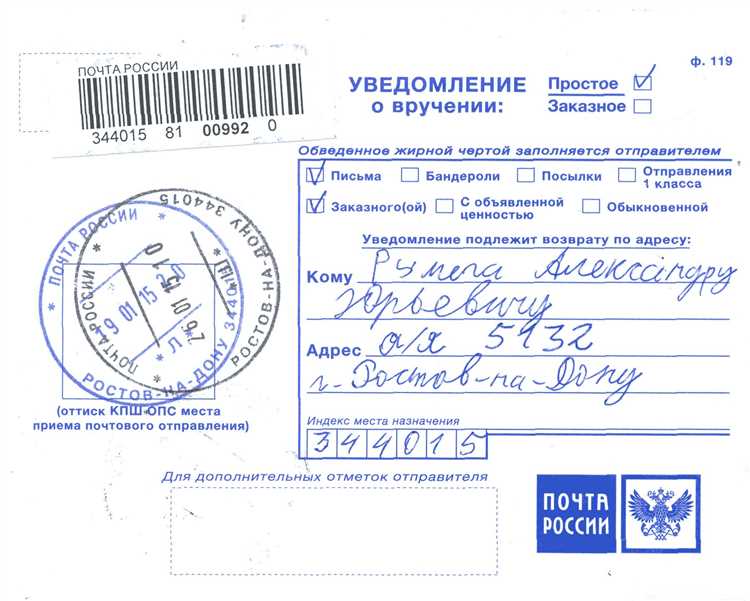 ф. 119
ПОЧТА РОССИИ
344015 81 00992 0
УВЕДОМЛЕНИЕ
о вручении:
Простое
Заказное
Обведенное жирной чертой заполняется отправителем
Письма Бандероли Посылки Отправления 1 класса
Заказного(ой) С объявленной ценностью Обыкновенной
Уведомление подлежит возврату по адресу:
Кому Александру
Юрьевичу
Адрес а/я 5132
г. Ростов-на-Дону
Индекс места назначения
344015
ПОЧТА РОССИИ
РОСТОВ-НА-ДОНУ 344015
ПОЧТА РОССИИ
РОСТОВ-НА-ДОНУ 344015
(оттиск КПШ ОПС места
приема почтового отправления)
Для дополнительных отметок отправителя
ПОЧТА
РОССИИ